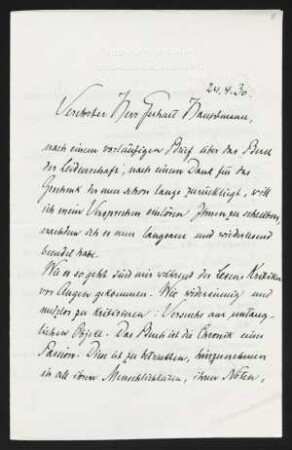 24.4.30.
Verehrter Herr Gerhart Hauptmann,
nach einem vorläufigen Brief über das Buch
der Leidenschaft, nach einem Dank für das
Geschenk der nun schon lange zurückliegt, will
ich mein Versprechen einlösen Ihnen zu schreiben,
nachdem ich es nun langsam und
beendet habe.
Wie es so geht sind mir während des Lesens Kritiken
vor Augen gekommen. Wie widersinnig und
nutzlos zu kritisieren. Versuche am
lichen Objekt. Das Buch ist die Chronik einer
Passion. Dies ist zu betrachten, hinzunehmen
in all ihren Menschlichkeiten, ihren Nöten,